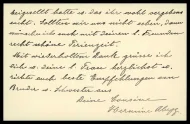 beigesellt hatte u. das ihr wohl vorgelesen
habt. Sollten wir uns nicht sehen, dann
wünsche ich euch mit deinem l. Freunden
recht schöne Ferienzeit.
Mit wiederholtem Dank, grüsse ich
dich u. deine l. Frau herzlichst u.
richte auch beste Empfehlungen von
Bruder u. Schwester aus
Deine Cousine
Hermine